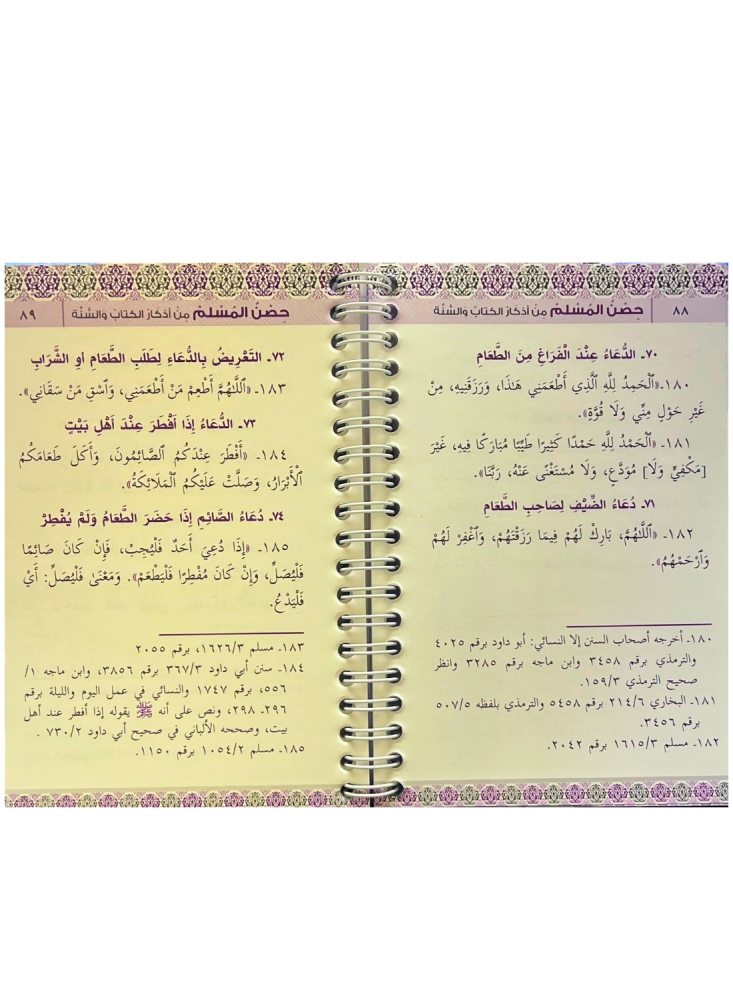 ٨٨ حِصْنُ المُسْلِمْ مِنْ أَذكَارُ الكِتَابُ وَالسُّنَّة
٧٠ـ الدُّعَاءُ عِنْدَ الْفَرَاغِ مِنَ الطَّعَامِ
١٨٠ـ «ٱلْحَمِدُ لِلَّهِ ٱلَّذِي أَطْعَمَنِي هَـٰذَا، وَرَزَقَنِيهِ، مِنْ
غَيْرِ حَوْلٍ مِنِّي وَلَا قُوَّةٍ».
١٨١ـ «ٱلْحَمْدُ لِلَّهِ حَمْدًا كَثِيرًا طَيِّبًا مُبَارَكًا فِيهِ، غَيْرَ
[مَكْفِيٍّ وَلَا] مُوَدَّعٍ، وَلَا مُسْتَغْنًى عَنْهُ، رَبَّنَا».
٧١ـ دُعَاءُ الضَّيْفِ لِصَاحِبِ الطَّعَامِ
١٨٢ـ «ٱللَّـٰهُمَّ، بَارِكْ لَهُمْ فِيمَا رَزَقْتَهُمْ، وَٱغْفِرْ لَهُمْ
وَٱرْحَمْهُمْ».
١٨٠ـ أخرجه أصحاب السنن إلا النسائي: أبو داود برقم ٤٠٢٥
والترمذي برقم ٣٤٥٨ وابن ماجه برقم ٣٢٨٥ وانظر
صحيح الترمذي ١٥٩/٣.
١٨١ـ البخاري ٢١٤/٦ برقم ٥٤٥٨ والترمذي بلفظه ٥٠٧/٥
برقم ٣٤٥٦.
١٨٢ـ مسلم ١٦١٥/٣ برقم ٢٠٤٢.
حِصْنُ المُسْلِمْ مِنْ أَذكَارُ الكِتَابُ وَالسُّنَّة ٨٩
٧٢ـ التَّعْرِيضُ بِالدُّعَاءِ لِطَلَبِ الطَّعَامِ أَوِ الشَّرَابِ
١٨٣ـ «ٱللَّـٰهُمَّ أَطْعِمْ مَنْ أَطْعَمَنِي، وَٱسْقِ مَنْ سَقَانِي».
٧٣ـ الدُّعَاءُ إِذَا أَفْطَرَ عِنْدَ أَهْلِ بَيْتٍ
١٨٤ـ «أَفْطَرَ عِنْدَكُمُ ٱلصَّائِمُونَ، وَأَكَلَ طَعَامَكُمُ
ٱلْأَبْرَارُ، وَصَلَّتْ عَلَيْكُمُ ٱلْمَلَائِكَةُ».
٧٤ـ دُعَاءُ الصَّائِمِ إِذَا حَضَرَ الطَّعَامُ وَلَمْ يُفْطِرْ
١٨٥ـ «إِذَا دُعِيَ أَحَدٌ فَلْيُجِبْ، فَإِنْ كَانَ صَائِمًا
فَلْيُصَلِّ، وَإِنْ كَانَ مُفْطِرًا فَلْيَطْعَمْ». وَمَعْنَىٰ فَلْيُصَلِّ: أَيْ
فَلْيَدْعُ.
١٨٣ـ مسلم ١٦٢٦/٣، برقم ٢٠٥٥
١٨٤ـ سنن أبي داود ٣٦٧/٣ برقم ٣٨٥٦، وابن ماجه ١/
٥٥٦، برقم ١٧٤٧ والنسائي في عمل اليوم والليلة برقم
٢٩٦ـ ٢٩٨، ونص على أنه ﷺ يقوله إذا أفطر عند أهل
بيت، وصححه الألباني في صحيح أبي داود ٧٣٠/٢ .
١٨٥ـ مسلم ١٠٥٤/٢ برقم ١١٥٠.